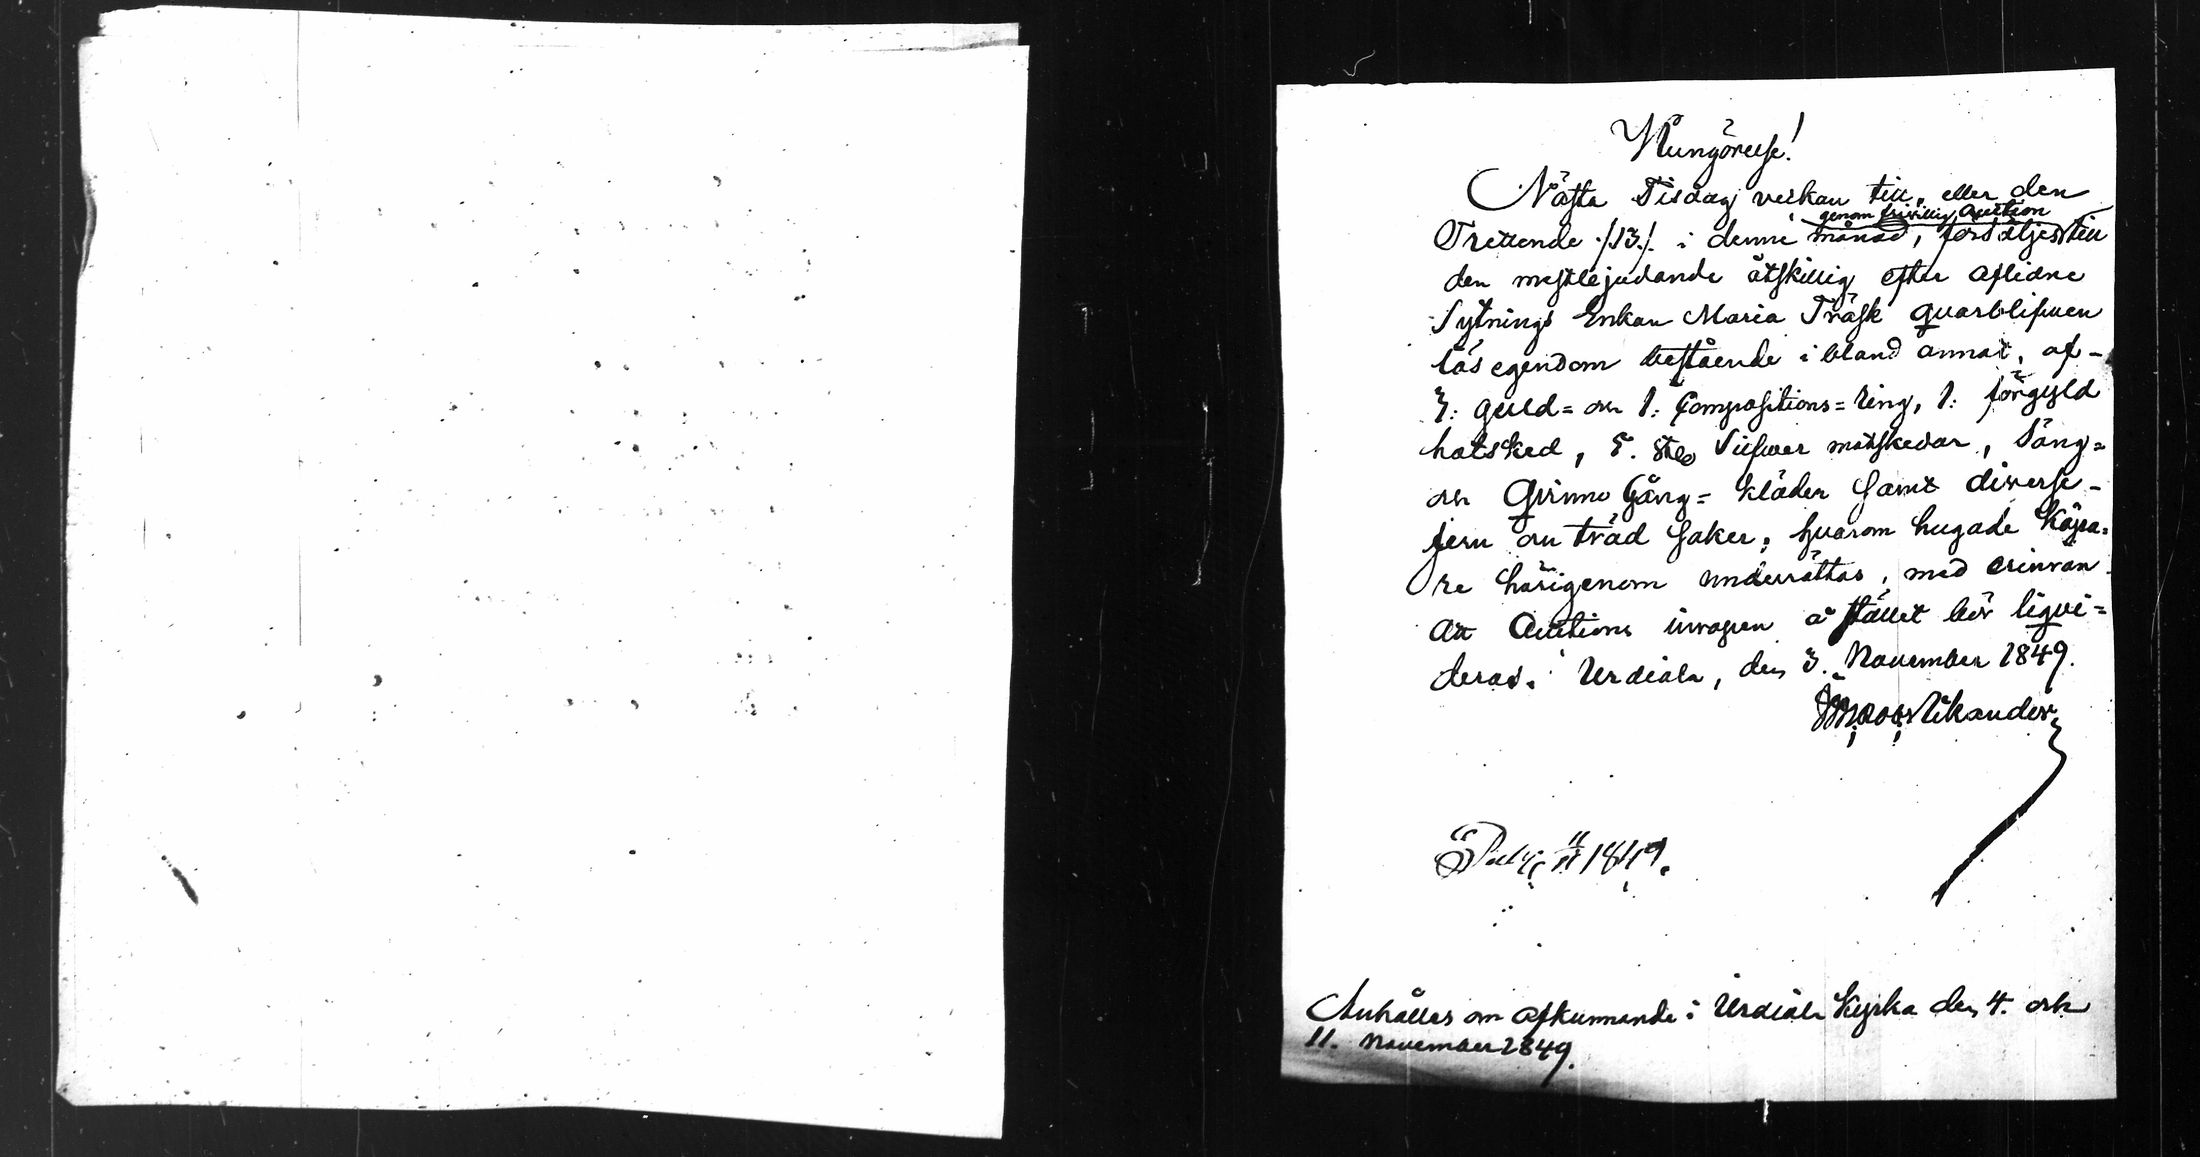 Kungörelse!
Nästa Tisdag veckan till, eller den
genom frivillig Auction
Trettende /13/. i denne månad, försäljes till
den mestbjudande åtskillig efter aflidne
Sytnings Enkan Maria Träsk quarblifwen
lös egendom bestående i bland annat, af
3: guld= och 1: Compositions=ring, 1: förgyld
hatsked, 5. st Silfwer matskedar, Säng=
och Qvinno Gång= kläder samt diverse
jern och träd saker; hvarom hugade Köpa=
re härigenom underrättas, med erinran
att Auctions inropen å stället bör liqvi=
deras. Urdiala, den 3. November 1849.
Wikander
1849.
Anhålles om afkunnande i Urdiala Kyrka den 4. och
11. November 1849.